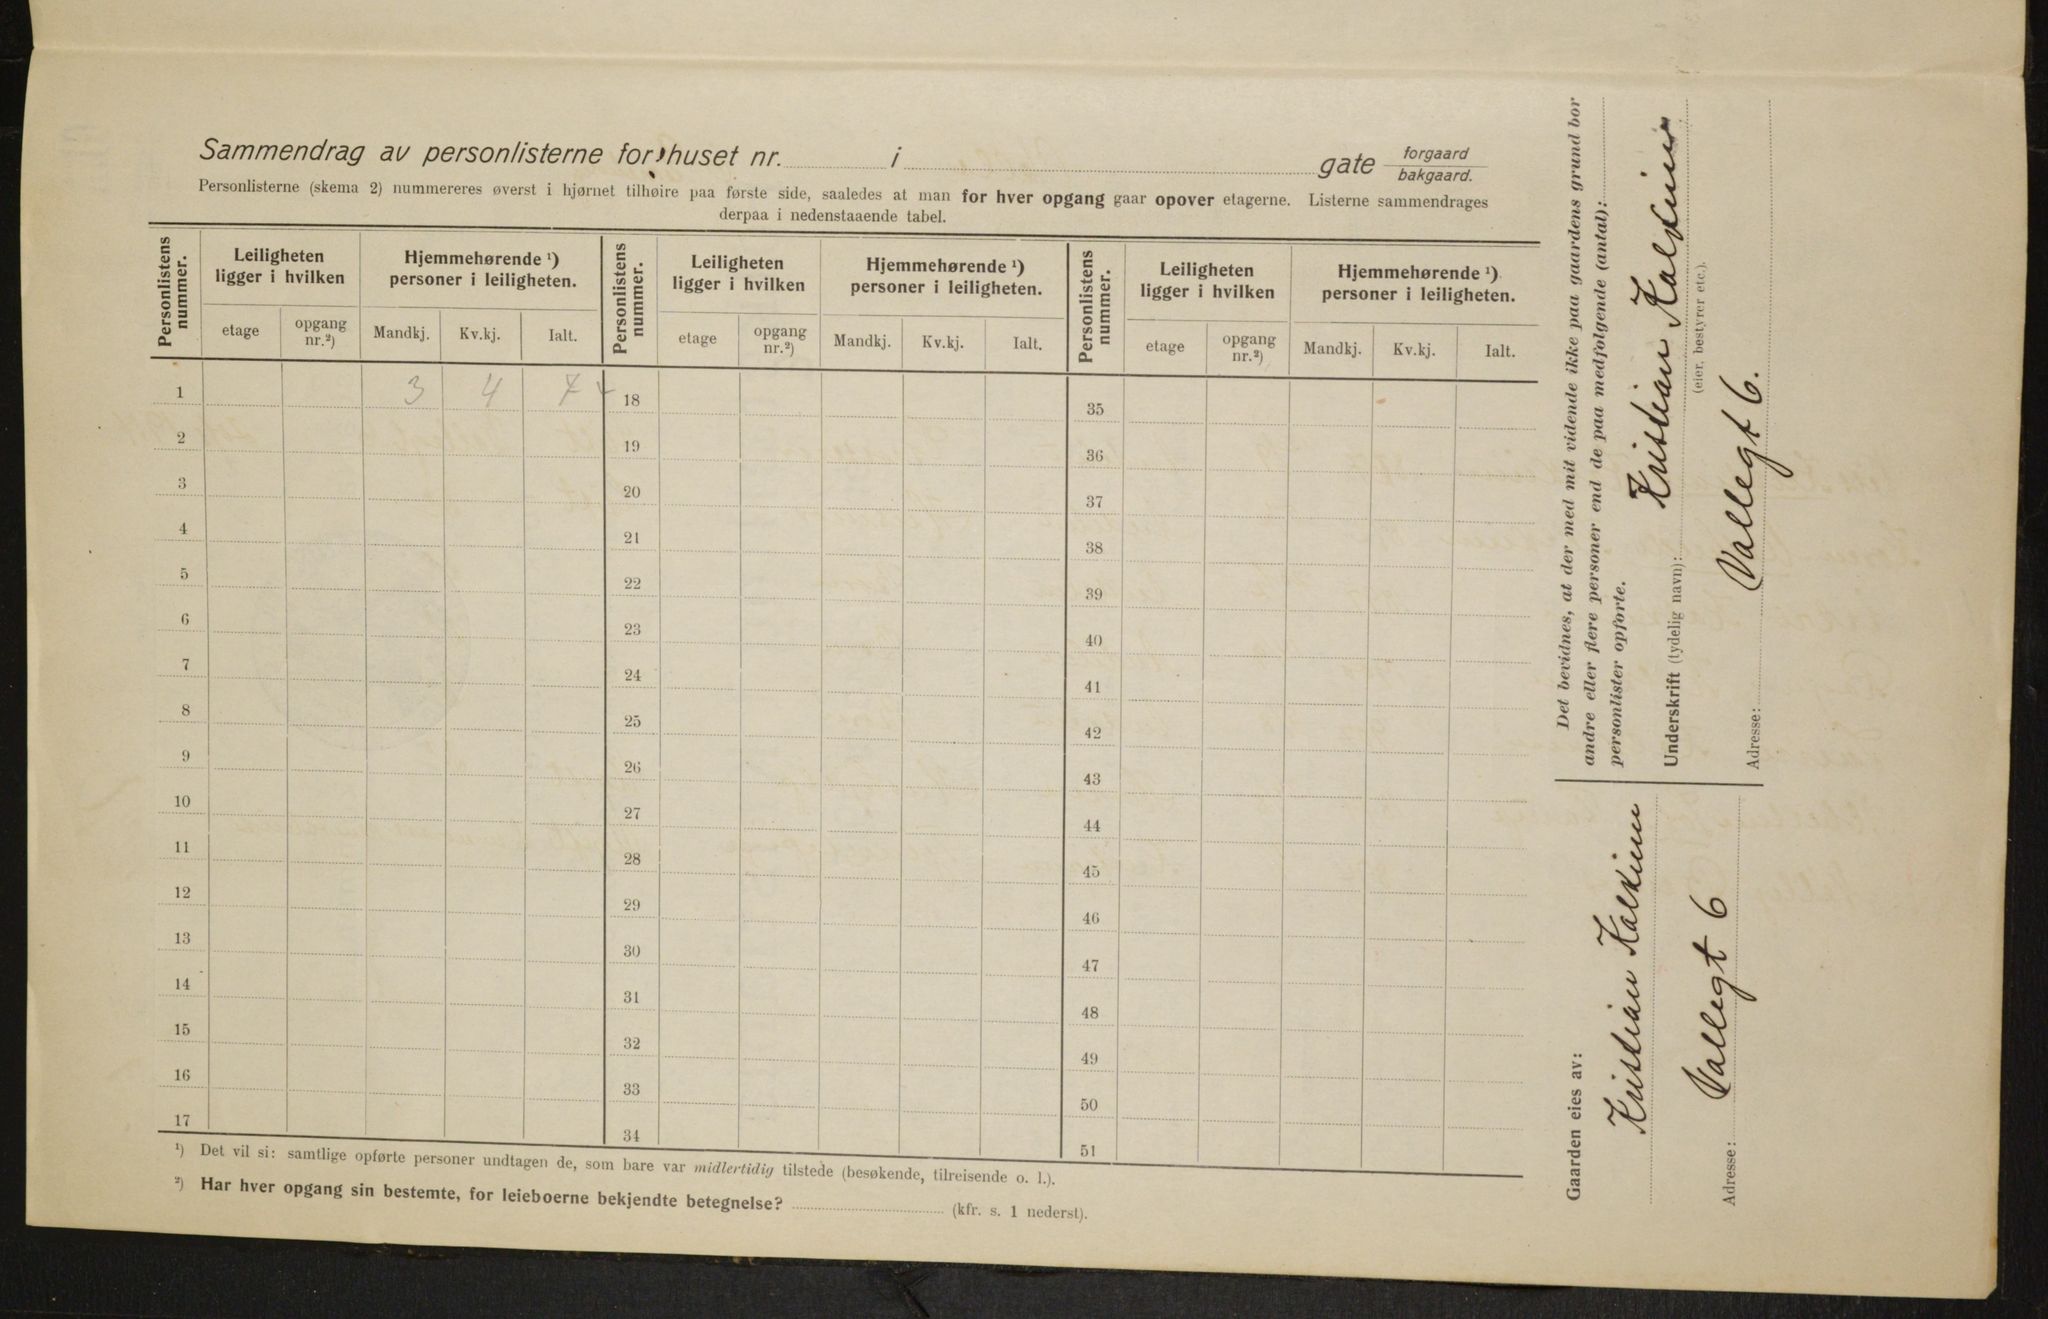 Sammendrag av personlisterne for huset nr. i gate forgaard
bakgaard.
Personlisterne (skema 2) nummereres øverst i hjørnet tilhøire paa første side, saaledes at man for hver opgang gaar opover etagerne. Listerne sammendrages
derpaa i nedenstaaende tabel.
Personlistens nummer. Leiligheten ligger i hvilken Hjemmehørende ¹) personer i leiligheten. Personlistens nummer. Leiligheten ligger i hvilken Hjemmehørende ¹) personer i leiligheten. Personlistens nummer. Leiligheten ligger i hvilken Hjemmehørende ¹) personer i leiligheten.
etage opgang nr.²) Mandkj. Kv.kj. Ialt. etage opgang nr.²) Mandkj. Kv.kj. Ialt. etage opgang nr.²) Mandkj. Kv.kj. Ialt.
1 3 4 7 18 35
2 19 36
3 20 37
4 21 38
5 22 39
6 23 40
7 24 41
8 25 42
9 26 43
10 27 44
11 28 45
12 29 46
13 30 47
14 31 48
15 32 49
16 33 50
17 34 51
¹) Det vil si: samtlige opførte personer undtagen de, som bare var midlertidig tilstede (besøkende, tilreisende o. l.).
²) Har hver opgang sin bestemte, for leieboerne bekjendte betegnelse? (kfr. s. 1 nederst).
Det bevidnes, at der med mit vidende ikke paa gaardens grund bor
andre eller flere personer end de paa medfølgende (antal):
personlister opførte.
Underskrift (tydelig navn): Kristian
(eier, bestyrer etc.).
Adresse: Vallegt 6.
Gaarden eies av:
Kristian
Adresse: Vallegt 6